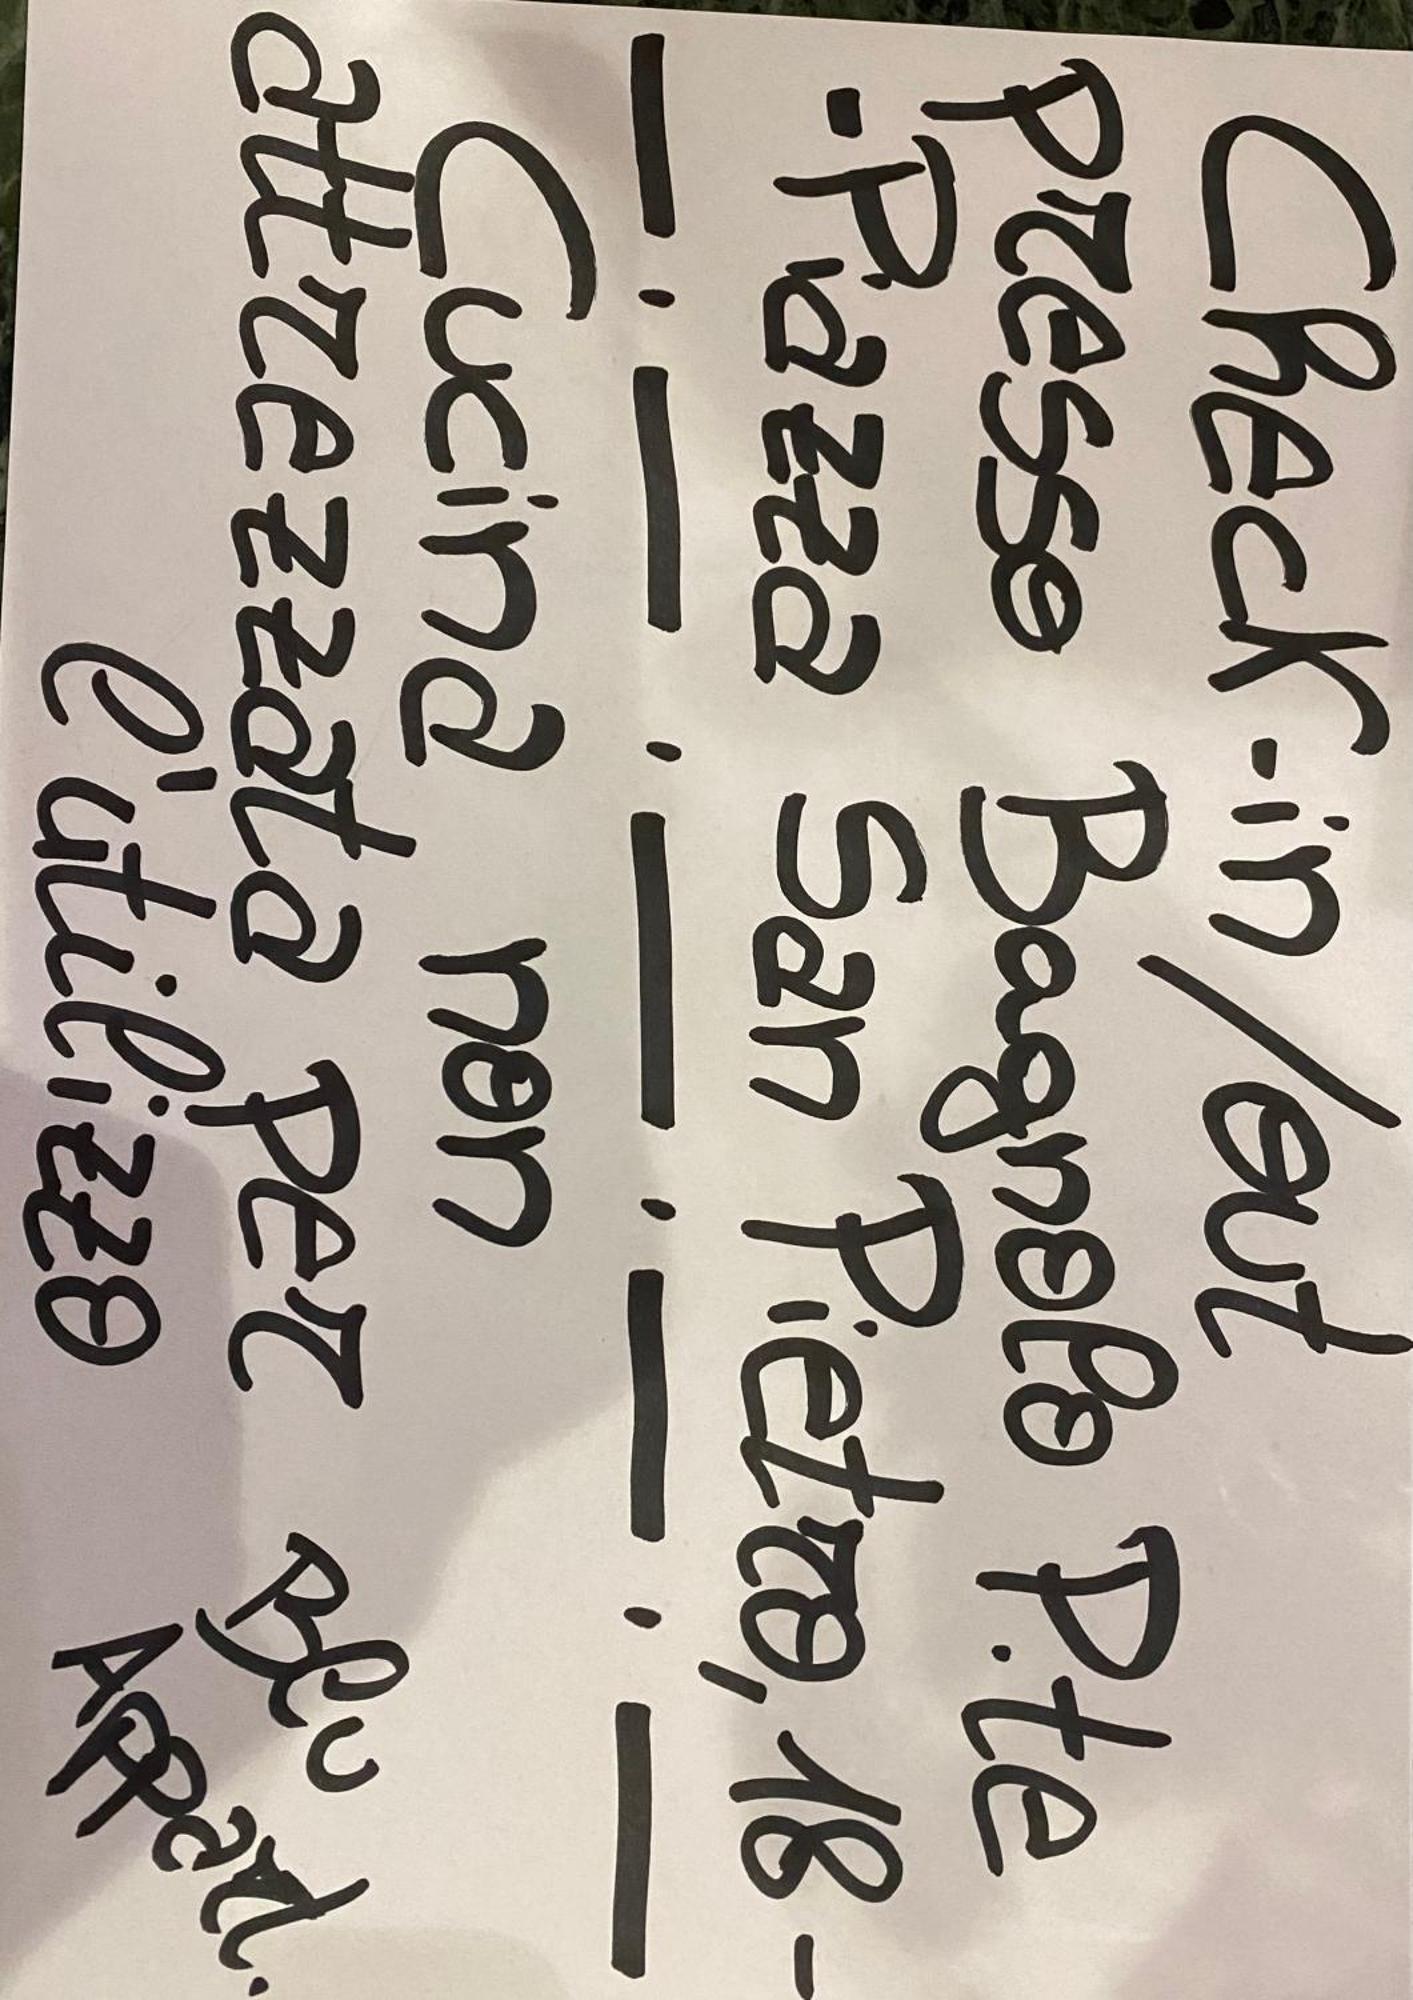 Check-in/out
presso Bagnolo P.te
- Piazza San Pietro, 18 -
Cucina non
attrezzata per
l'utilizzo
Blu
Appart.